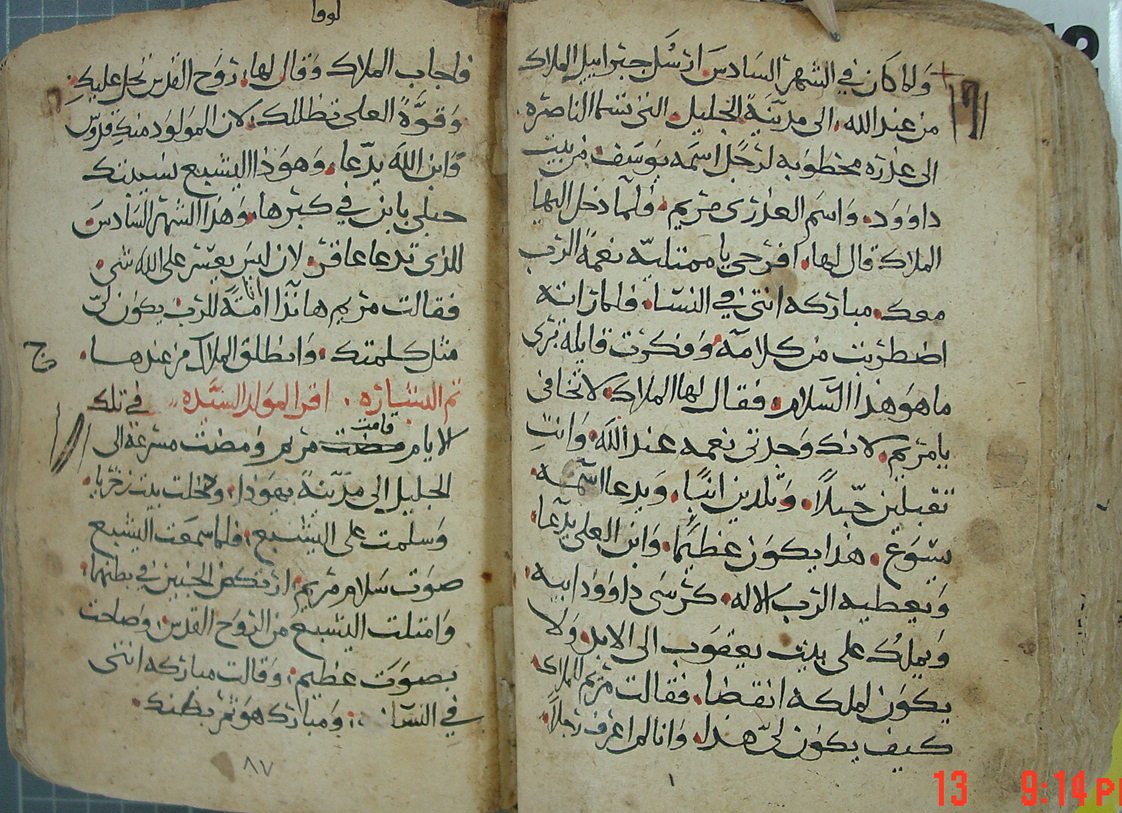 ولما كان في الشهر السادس ارسل جبراييل الملاك
من عند الله، الى مدينة الجليل، التي تسما الناصره.
الى عذره مخطوبه لرجل اسمه يوسف من بيت
داوود. واسم العذرى مريم. فلما دخل اليها
الملاك قال لها، افرحي يا ممتليه نعمة الرب
معك. مباركه انتي في النسا. فلما راته
اضطربت من كلامه، وفكرت قايله ترى
ما هو هذا السلام، فقال لها الملاك لا تخافي
يا مريم، لانك وجدتي نعمه عند الله، وانتِ
تقبلين حبلاً، وتلدين ابنًا، ويدعا اسمه
يسوع. هذا يكون عظيمًا، وابن العلي يدعا،
ويعطيه الرب الاله، كرسي داوود ابيه.
ويملك على بيت يعقوب الى الابد، ولا
يكون لملكه انقضا، فقالت مريم للملاك
كيف يكون لي هذا، وانا لم اعرف رجلاً.
لوقا
فاجاب الملاك وقال لها، روح القدس يحل عليكِ
وقوة العلي تظللك، لان المولود منكِ قدوس
وابن الله يدعا، وهوذا اليشبع نسيبتك
حبلى بابن في كبرها، وهذا الشهر السادس
للذي تدعا عاقر، لان ليس يعسر على الله شي.
فقالت مريم هانذا انا امةً للرب يكون لي
مثل كلمتك، وانطلق الملاك من عندها.
تم البشاره. اقرا لمولد السيده في تلك
الايام قامت مريم ومضت مسرعه الى
الجليل الى مدينة يهوذا، ودخلت بيت زخريا،
وسلمت على اليشبع، فلما سمعت اليشبع
صوت سلام مريم، ارتكض الجنين في بطنها،
وامتلت اليشبع من الروح القدس، وصاحت
بصوت عظيم، وقالت مباركه انتي
في النسا، ومبارك هو ثمر بطنك.
٨٧
13 9:14 P